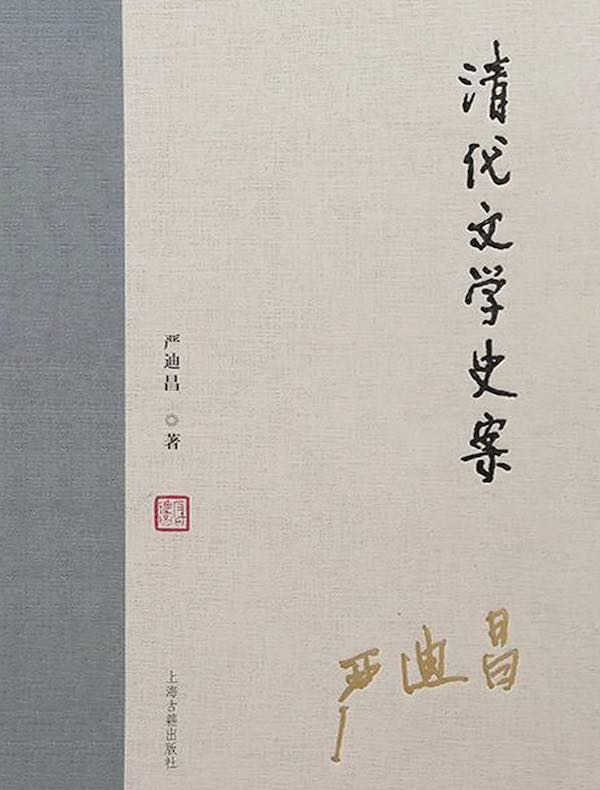 清代文学史案
严迪昌
严迪昌 ◎ 著
上海古籍出版社